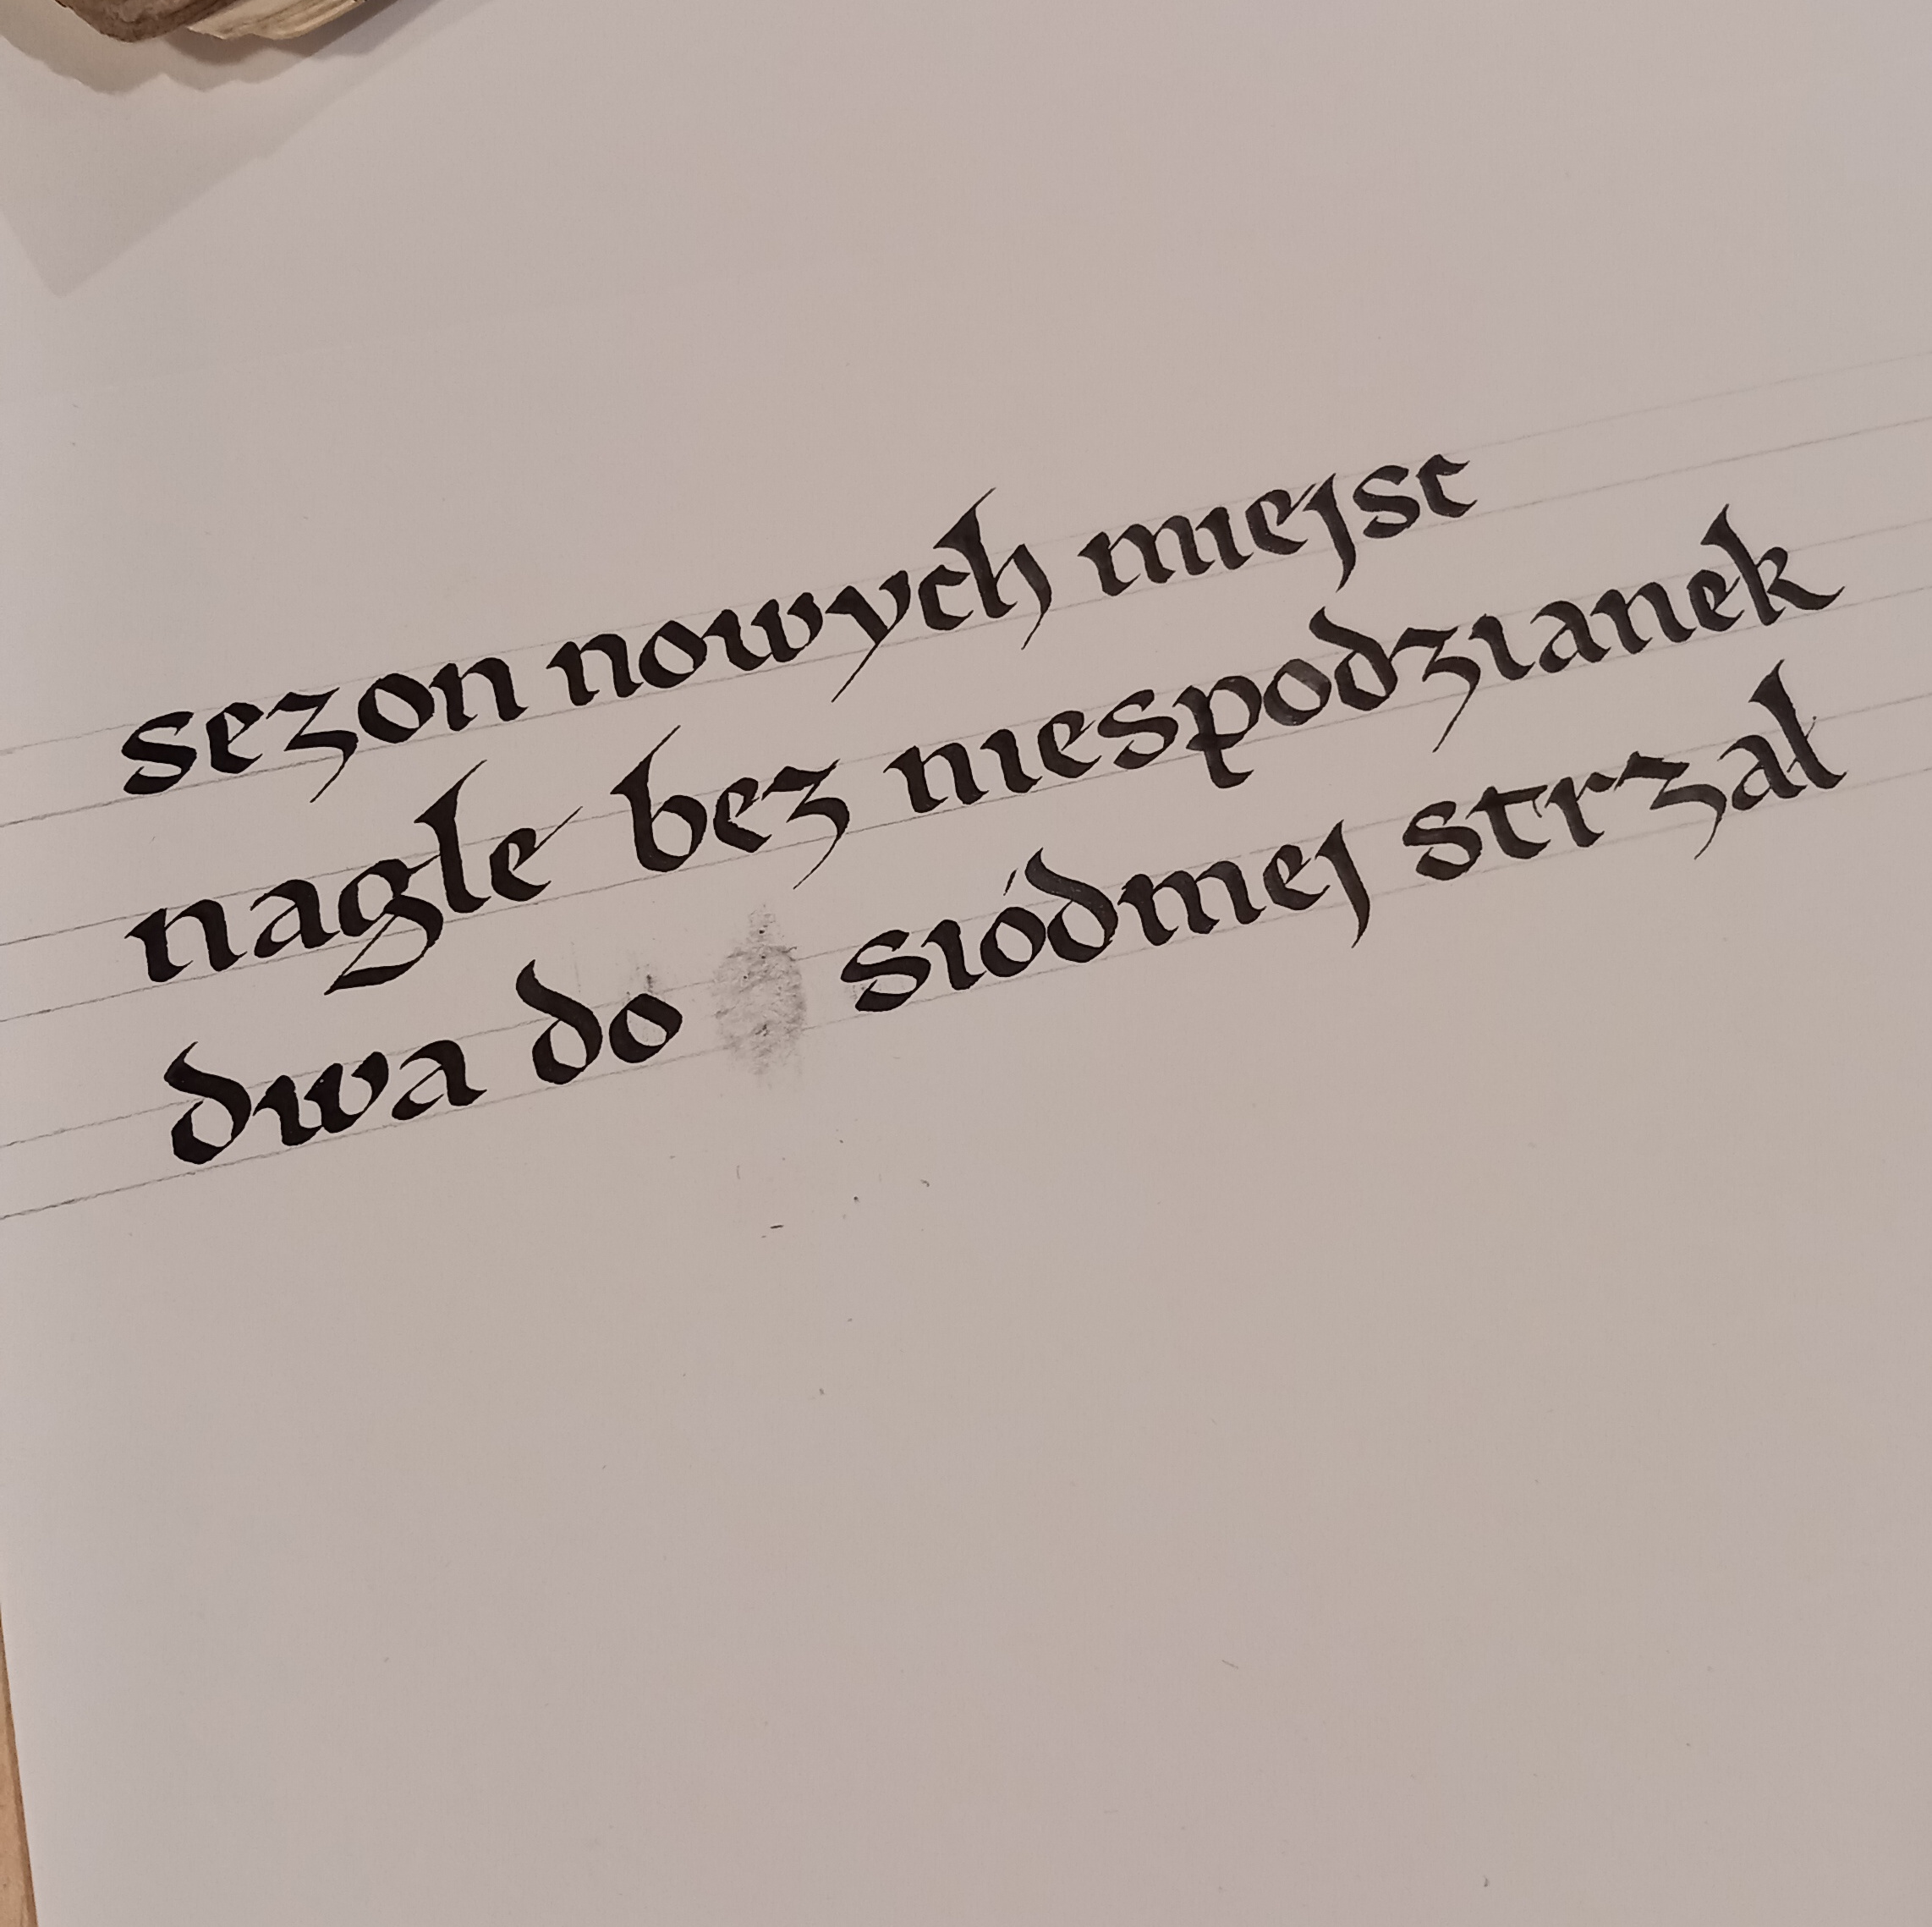 sezon nowych miejsc
nagle bez niespodzianek
dwa do siódmej strzał